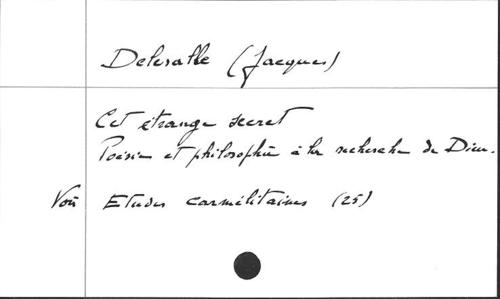 Delesalle (Jacques)
Cet étrange secret
Poésie et philosophie à la recherche de Dieu.
Voir Etudes carmélitaines (25)